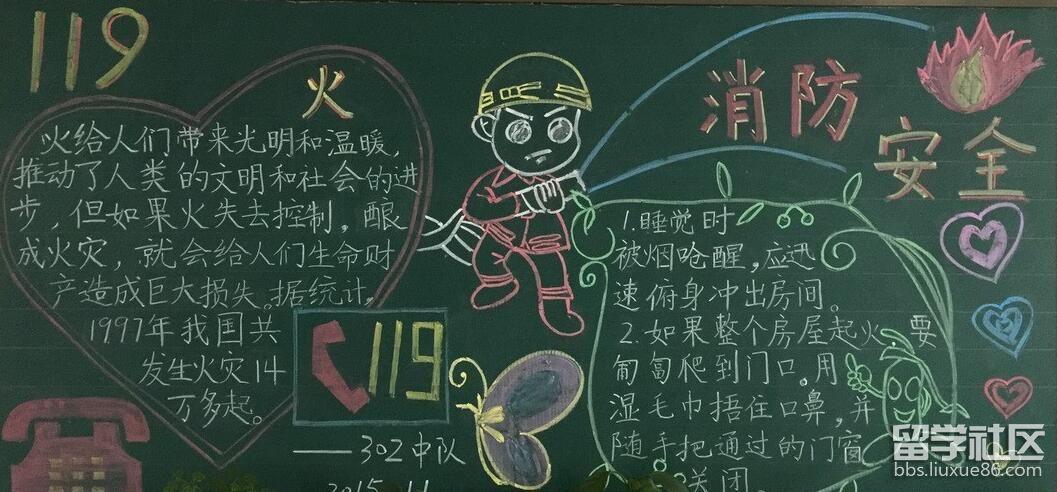 119
火
火给人们带来光明和温暖，
推动了人类的文明和社会的进
步，但如果火失去控制，酿
成火灾，就会给人们生命财
产造成巨大损失。据统计，
1997年我国共
发生火灾14
万多起。
119
——302中队
2015.11
消防
安全
1.睡觉时
被烟呛醒，应迅
速俯身冲出房间。
2.如果整个房屋起火，要
匍匐爬到门口。用
湿毛巾捂住口鼻，并
随手把通过的门窗
关闭。
留学社区
bbs.liuxue86.com